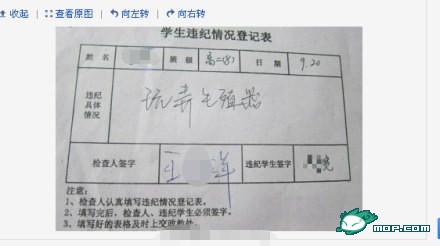 收起 查看原图 向左转 向右转
学生违纪情况登记表
姓名 班级 高二(8) 日期 9.20
违纪具体情况 玩弄生殖器
检查人签字 王 洋 违纪学生签字
注意：
1、检查人认真填写违纪情况登记表。
2、填写完后，检查人、违纪学生必须签字。
3、填写好的表格及时上交政教处。
mop.com